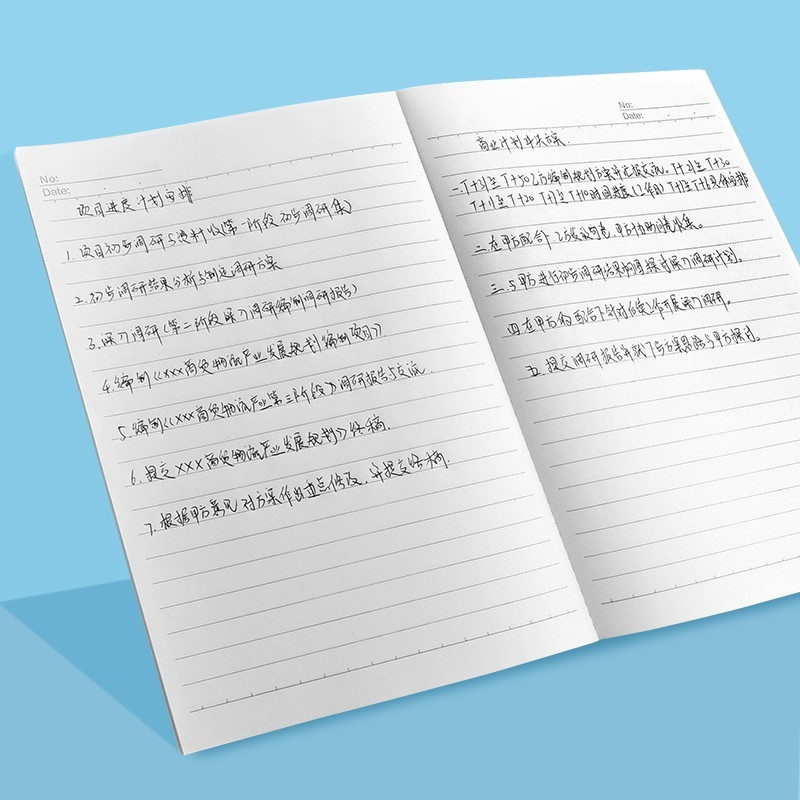 No:
Date:
项目进度计划安排
1. 项目初步调研与资料收(第一阶段初步调研集)
2. 初步调研结果分析与制定调研方案
3. 深入调研(第二阶段深入调研编制调研报告)
4. 编制《XXX商贸物流产业发展规划编制项目》
5. 编制《XXX商贸物流产业第三阶段》调研报告与交流
6. 提交XXX商贸物流产业发展规划》终稿
7. 根据甲方意见对方案作出重点修改,并提交终稿.
No:
Date:
商业计划
一. T+31至T+50乙方编制规划方案并 T+21至T+30
T+11至T+20 T+1至T+10时间进度(工作日) T+1至T+
二. 在甲方配合下 甲方协助 收集。
三. 与甲方进行初步调研结果 探讨深入调研计划.
四. 在甲方的配合下针对后续工作开展深入调研。
五. 提交调研报告并就下步方案思路与甲方探讨。